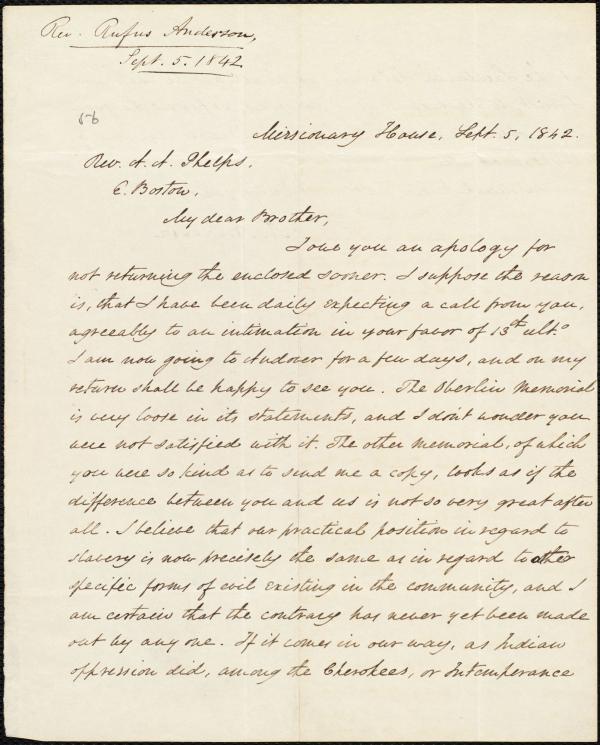 Rev. Rufus Anderson,
Sept. 5. 1842
Missionary House, Sept. 5, 1842.
Rev. A. A. Phelps,
E. Boston,
My dear Brother,
I owe you an apology for
not returning the enclosed sooner. I suppose the reason
is, that I have been daily expecting a call from you,
agreeably to an intimation in your favor of 13th ult.o
I am now going to Andover for a few days, and on my
return shall be happy to see you. The Oberlin Memorial
is very loose in its statements, and I don't wonder you
were not satisfied with it. The other memorial, of which
you were so kind as to send me a copy, looks as if the
difference between you and us is not so very great after
all. I believe that our practical position in regard to
slavery is now precisely the same as in regard to other
specific forms of evil existing in the community, and I
am certain that the contrary has never yet been made
out by any one. If it comes in our way, as Indian
oppression did, among the Cherokees, or Intemperance